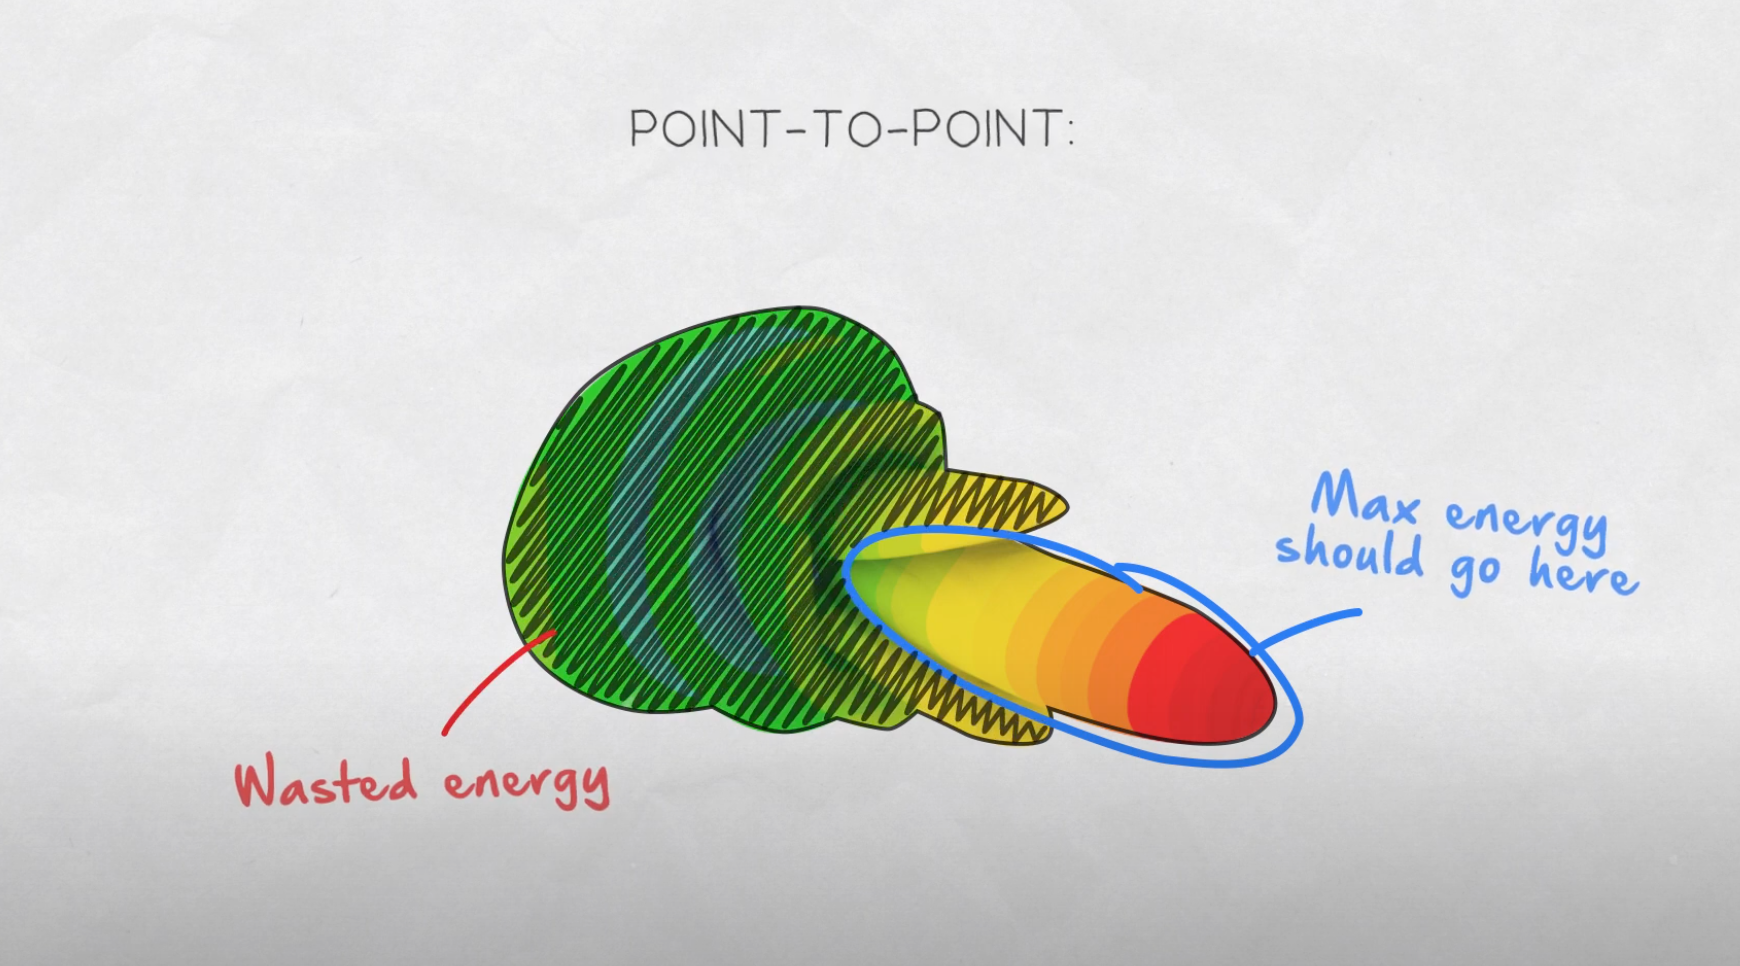 POINT-TO-POINT:
Max energy
should go here
Wasted energy